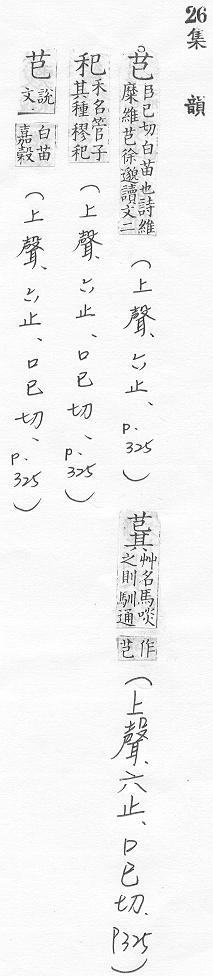 26 集韻
芑 巨已切白苗也詩維
糜維芑徐邈讀文二
(上聲、六止、p.325)
艸名馬啖
之則馴通
作芑
(上聲、六止、口已切、P325)
禾名管子
其種穋
(上聲、六止、口已切、p.325)
芑 說文
白苗嘉穀
(上聲、六止、口已切、p.325)